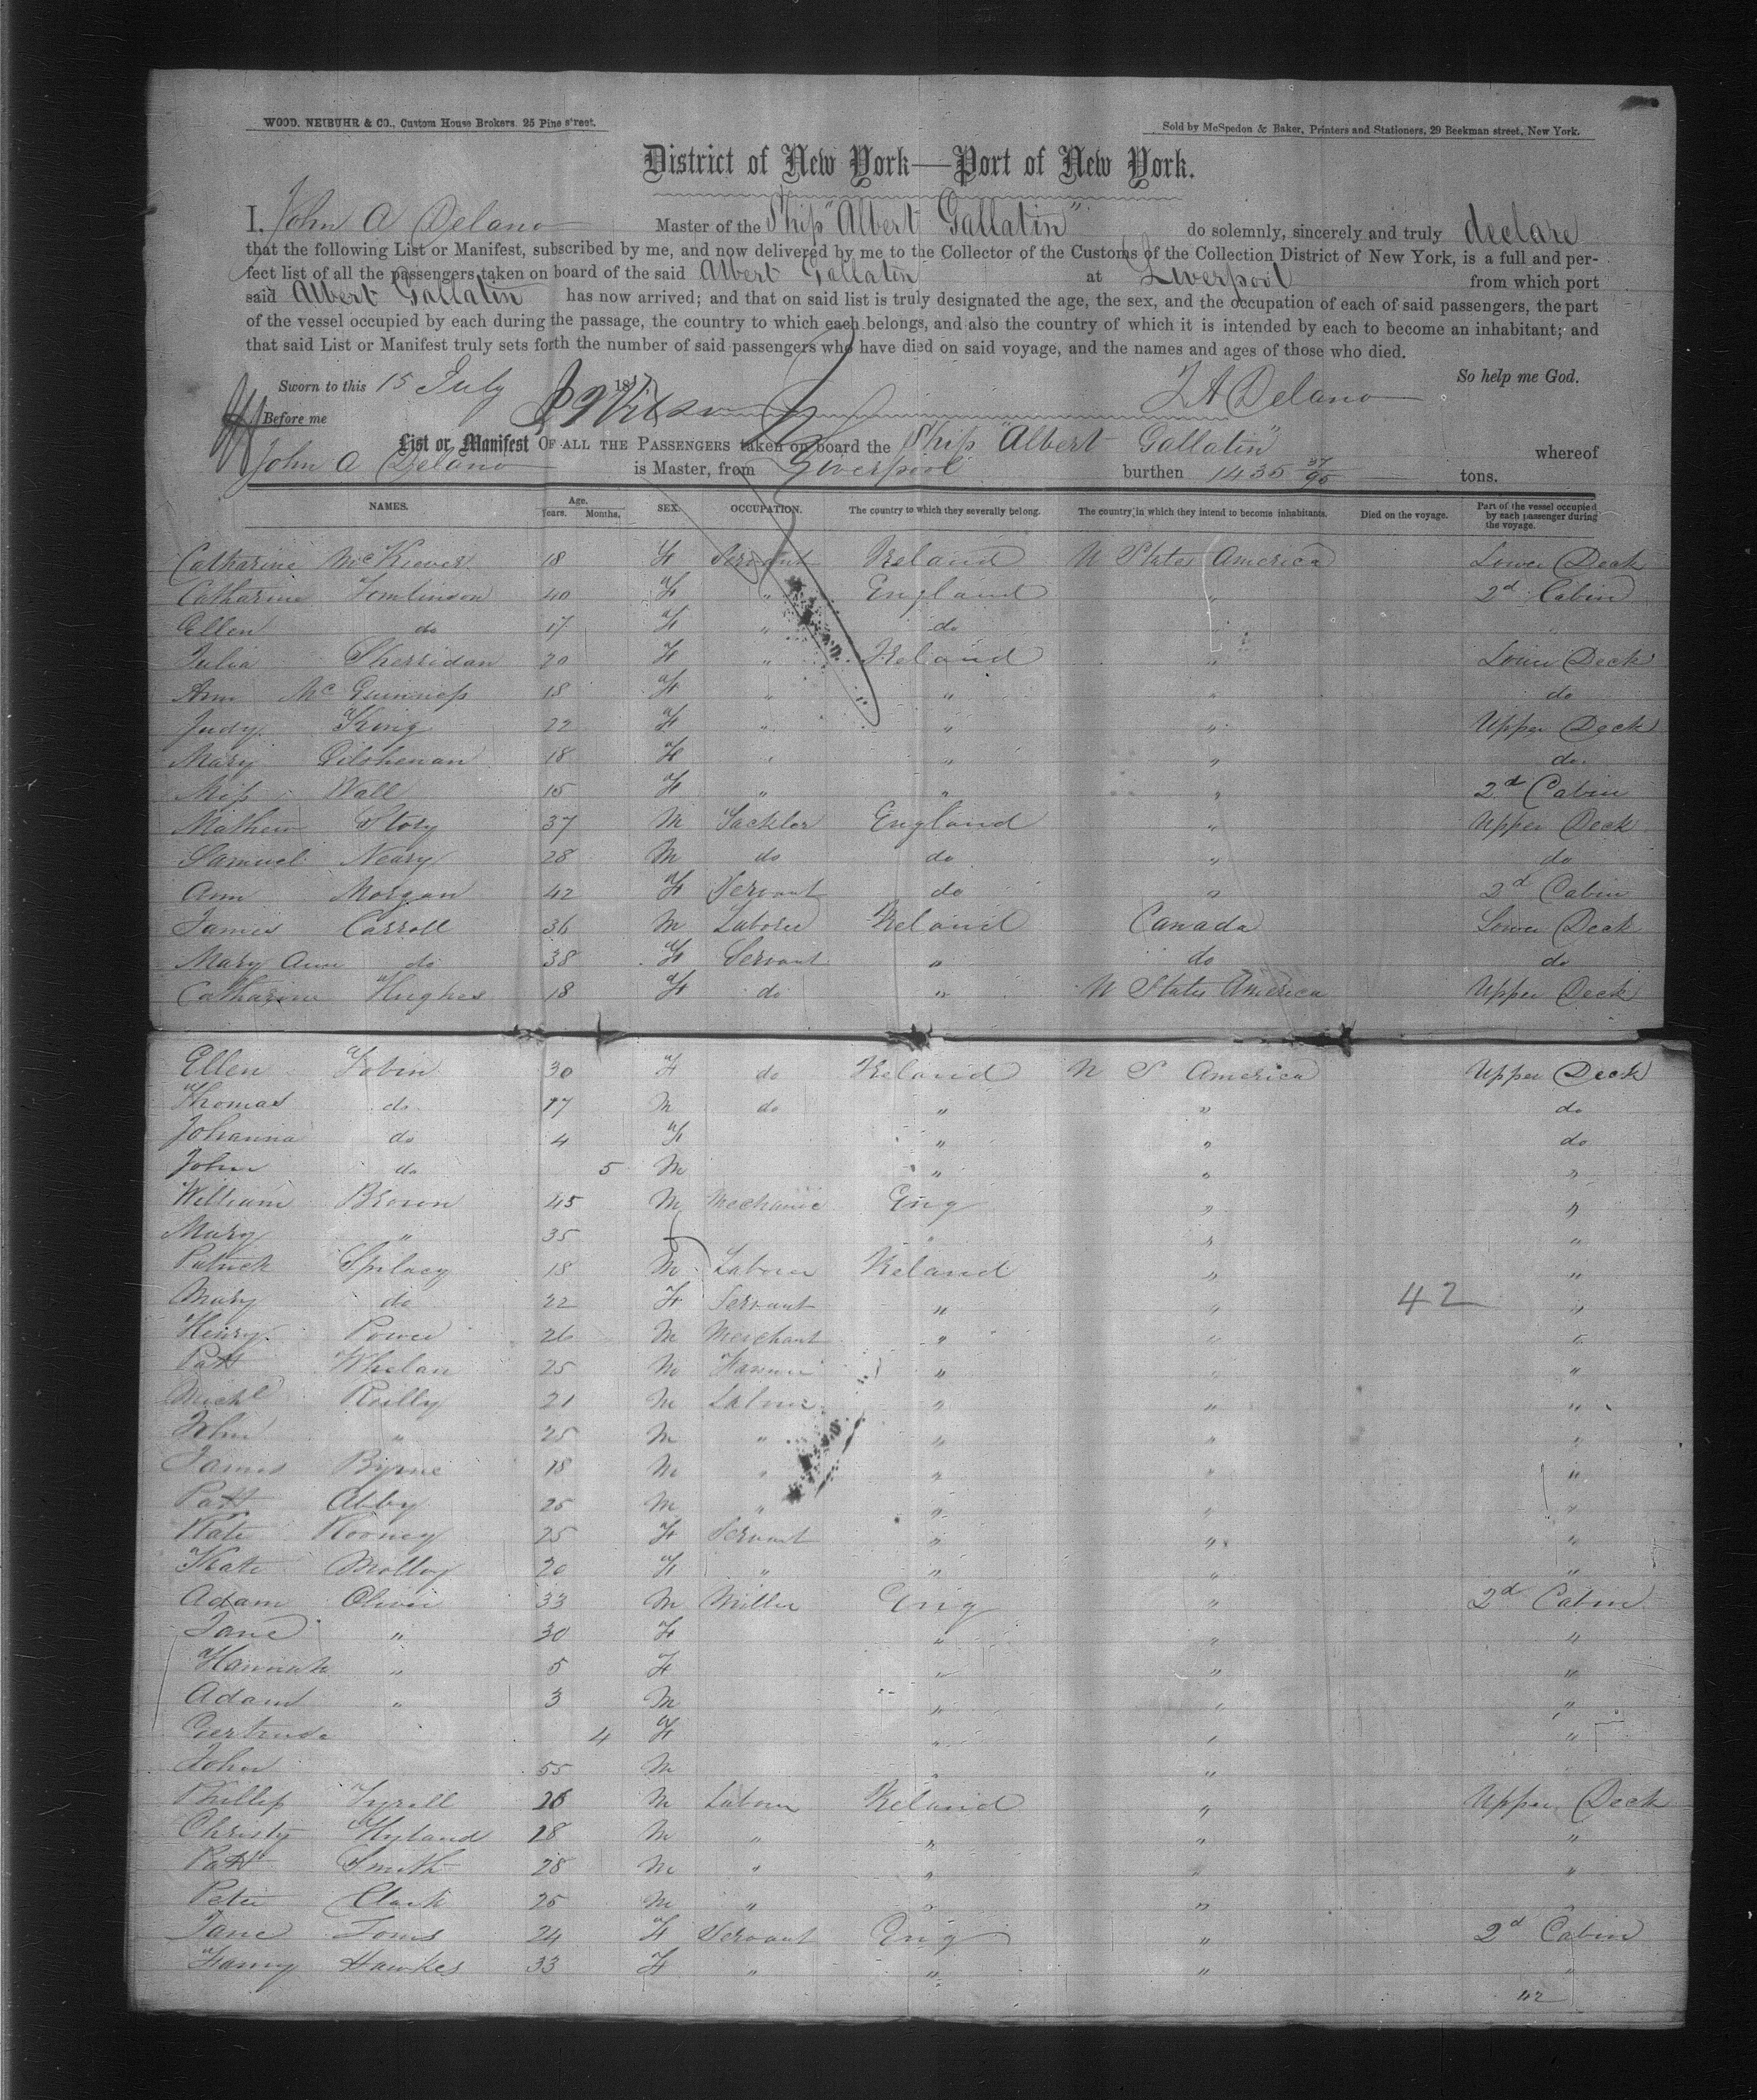 WOOD, NEIBUHR & CO., Custom House Brokers. 25 Pine street.
Sold by McSpedon & Baker, Printers and Stationers, 29 Beekman street, New York.
District of New York—Port of New York.
I, John A Delano Master of the Ship "Albert Gallatin" do solemnly, sincerely and truly declare
that the following List or Manifest, subscribed by me, and now delivered by me to the Collector of the Customs of the Collection District of New York, is a full and per-
fect list of all the passengers taken on board of the said Albert Gallatin at Liverpool from which port
said Albert Gallatin has now arrived; and that on said list is truly designated the age, the sex, and the occupation of each of said passengers, the part
of the vessel occupied by each during the passage, the country to which each belongs, and also the country of which it is intended by each to become an inhabitant; and
that said List or Manifest truly sets forth the number of said passengers who have died on said voyage, and the names and ages of those who died.
So help me God.
Sworn to this 15 July 18
J A Delano
Before me
List or Manifest OF ALL THE PASSENGERS taken on board the Ship "Albert Gallatin" whereof
John A Delano is Master, from Liverpool burthen 1435 37/95 tons.
NAMES. Age. Years. Months. SEX. OCCUPATION. The country to which they severally belong. The country in which they intend to become inhabitants. Died on the voyage. Part of the vessel occupied by each passenger during the voyage.
Catharine McKiever 18 F Servant Ireland U States America Lower Deck
Catharine Tomlinson 40 F " England " 2d Cabin
Ellen do 17 F " do "
Julia Sherridan 20 F " Ireland " Lower Deck
Ann McGuinness 18 F " " " do
Judy King 22 F " " " Upper Deck
Mary Gilshenan 18 F " " " do
Miss Wall 15 F " " " 2d Cabin
Mathew Story 37 M England " Upper Deck
Samuel Neary 28 M do do " do
Ann Morgan 42 F Servant do " 2d Cabin
James Carroll 36 M Laborer Ireland Canada Lower Deck
Mary Ann do 38 F Servant " do do
Catharine Hughes 18 F do " U States America Upper Deck
Ellen Tobin 30 F do Ireland U S America Upper Deck
Thomas do 17 M do " " do
Johanna do 4 F " " do
John do 5 M " " "
William Brown 45 M Mechanic Eng " "
Mary " 35 f " " "
Patrick Spilacy 18 M Laborer Ireland " "
Mary do 22 F Servant " " "
42
Henry Power 26 M Merchant " " "
Patt Whelan 25 M Farmer " " "
Michl Reilly 21 M Labour " " "
John " 25 M " " " "
James Byrne 18 M " " " "
Patt Abby 25 M " " " "
Kate Rooney 25 F Servant " " "
Kate Molloy 20 F " " " "
Adam Oliver 33 M Miller Eng " 2d Cabin
Jane " 30 F " " "
Hannah " 5 F " " "
Adam " 3 M " " "
Gertrude 4 F " " "
John 55 M " "
Phillip Tyrell M Labour Ireland " Upper Deck
Christy Hyland 28 M " " " "
Patt Smith 28 M " " " "
Peter Clark 25 M " " "
Jane 24 F Servant Eng " 2d Cabin
Fanny Hawkes 33 F " " " "
42